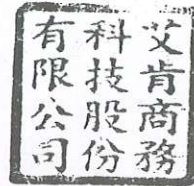 艾肯商務
科技股份
有限公司